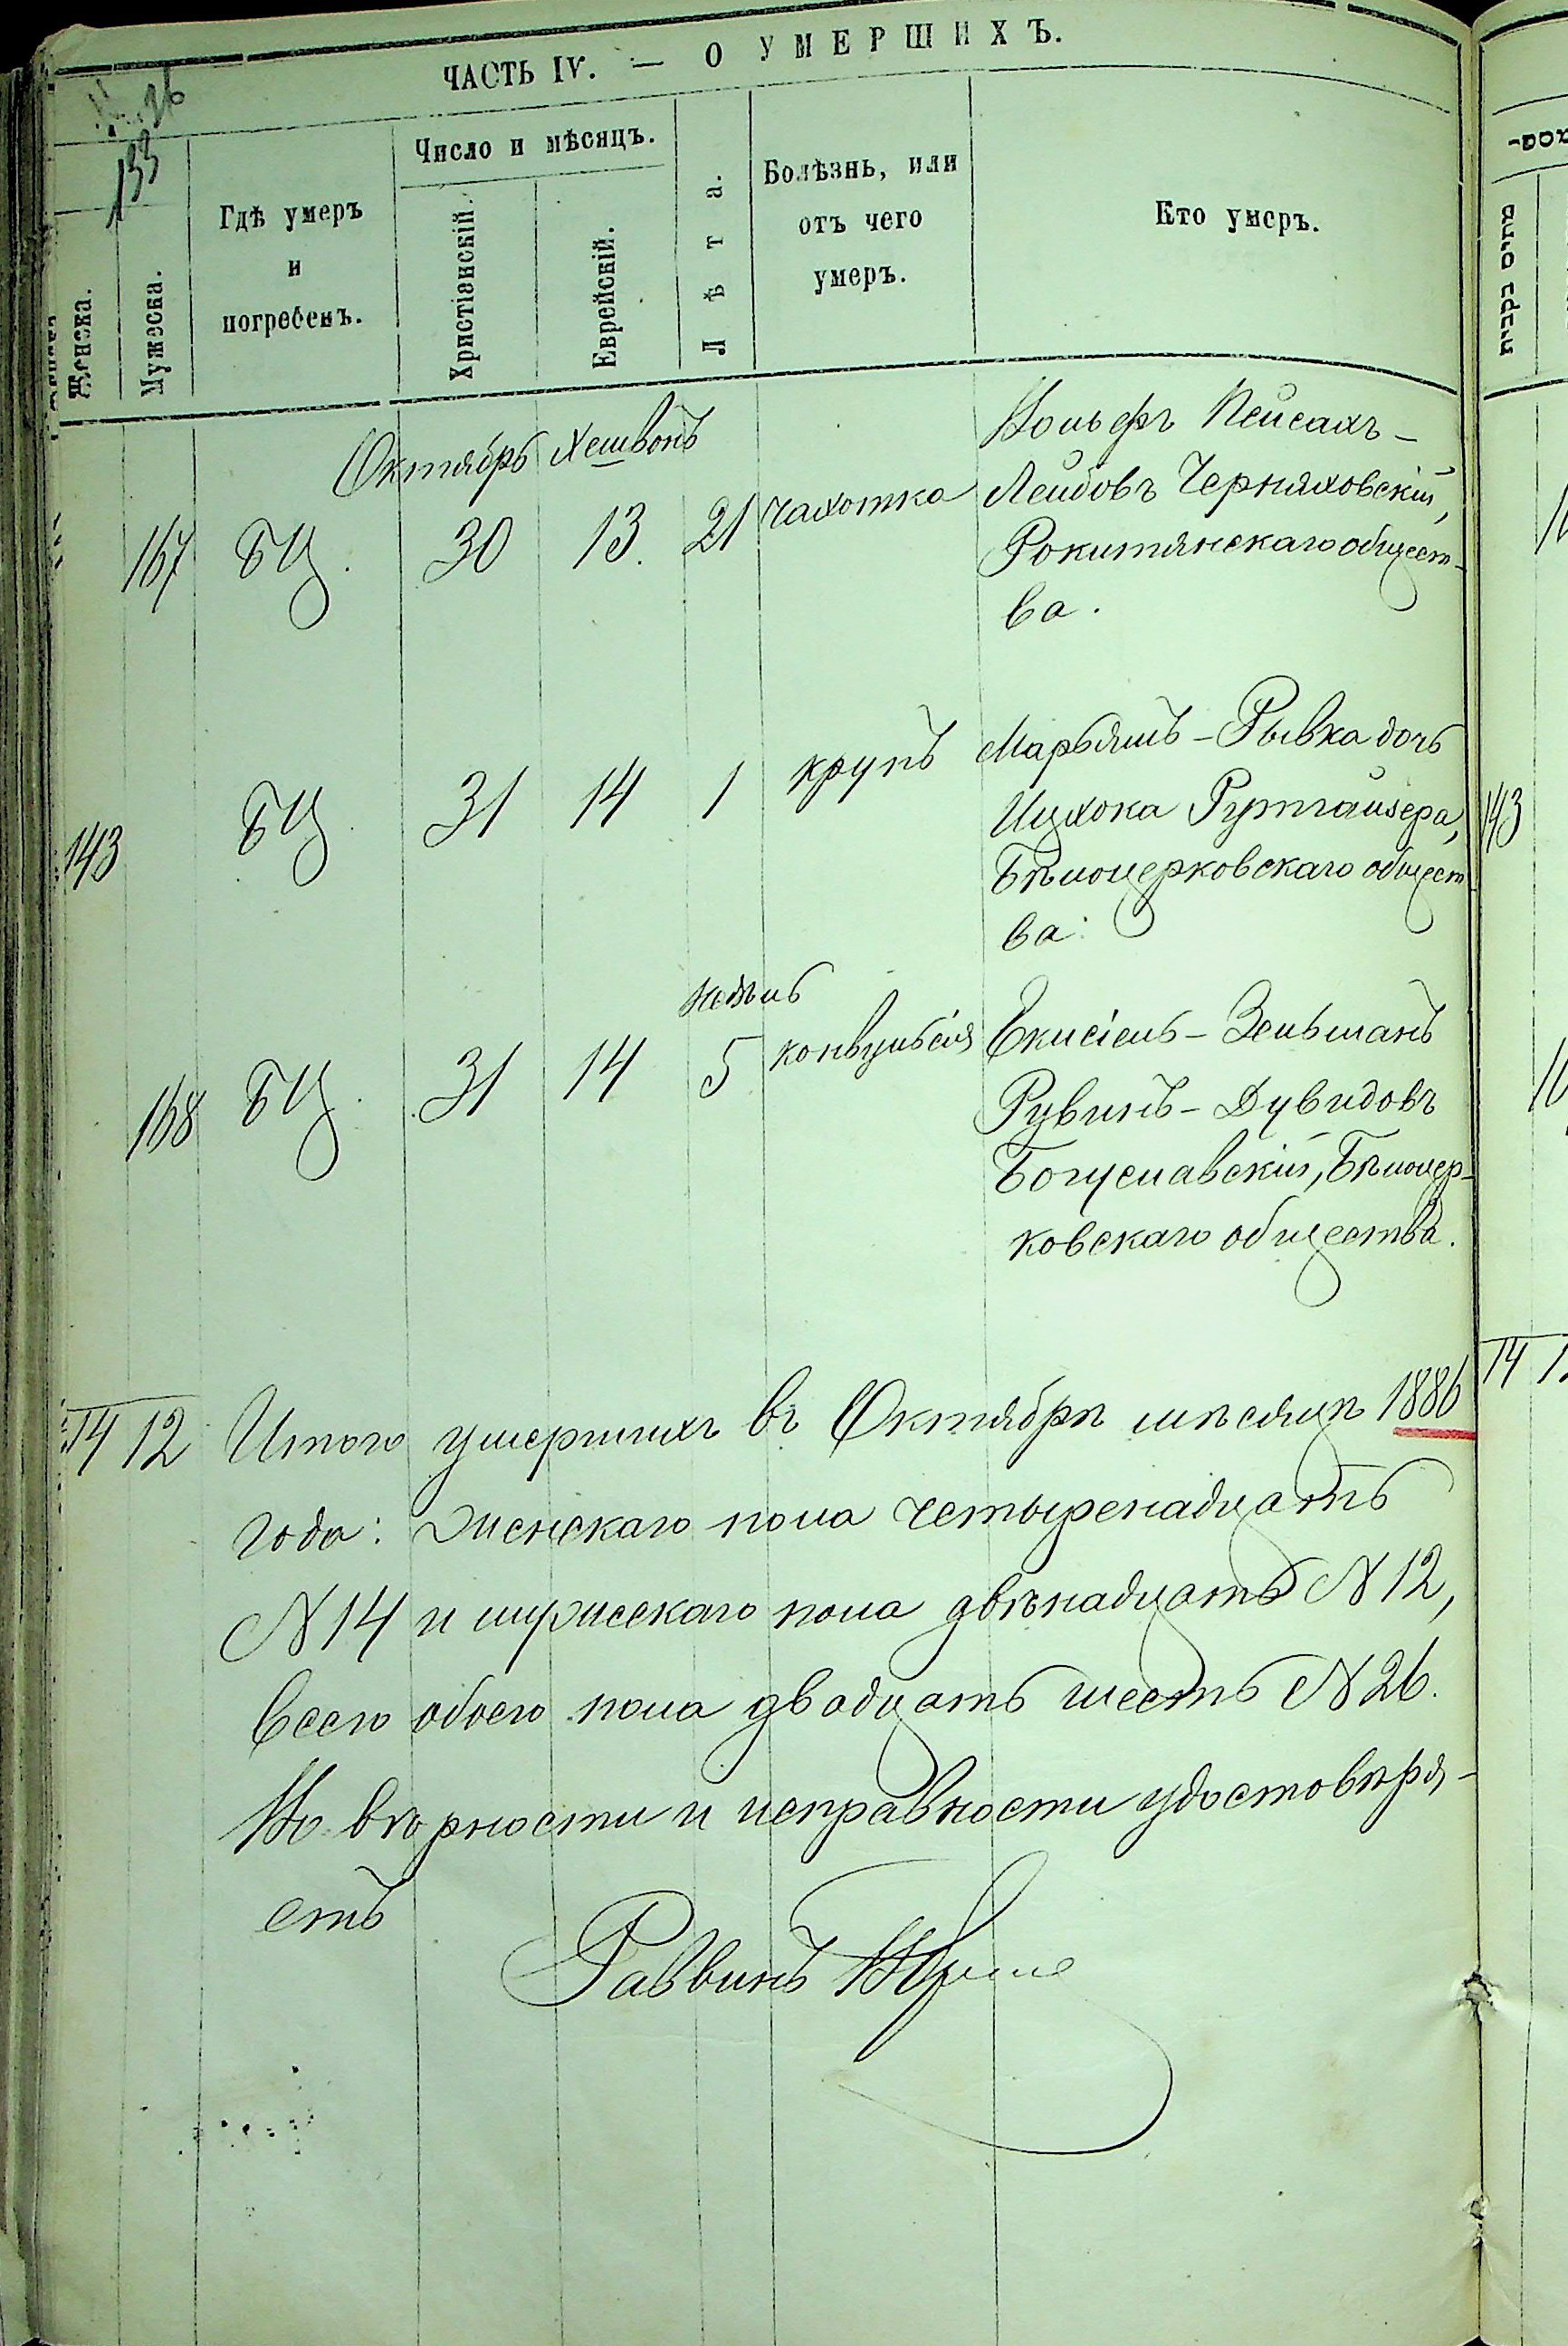 ЧАСТЬ IV. — О УМЕРШИХЪ.
133
Женска.
Мужеска.
Гдѣ умеръ
и
погребенъ.
Число и мѣсяцъ.
Христіанскій.
Еврейскій.
Лѣта.
Болѣзнь, или
отъ чего
умеръ.
Кто умеръ.
Октябрь Хешвонъ
167 БЦ. 30 13. 21 чахотка
Вольфъ Пейсахъ-
Лейбовъ Черняховскій,
Рокитянскаго общест-
ва.
143 БЦ. 31 14 1 крупъ
Марьямъ-Рывка дочь
Ицхока Рутгайзера,
Бѣлоцерковскаго общест-
ва.
недѣль
168 БЦ. 31 14 5 конвульсія
Екисіель-Зельманъ
Рувинъ-Дувидовъ
Богуславскій, Бѣлоцер-
ковскаго общества.
14 12 Итого умершихъ въ Октябрѣ мѣсяцѣ 1886
года: женскаго пола четыренадцать
N 14 и мужескаго пола двѣнадцать N 12,
всего обоего пола двадцать шесть N 26.
Въ вѣрности и исправности удостовѣря-
етъ
Раввинъ
143
14